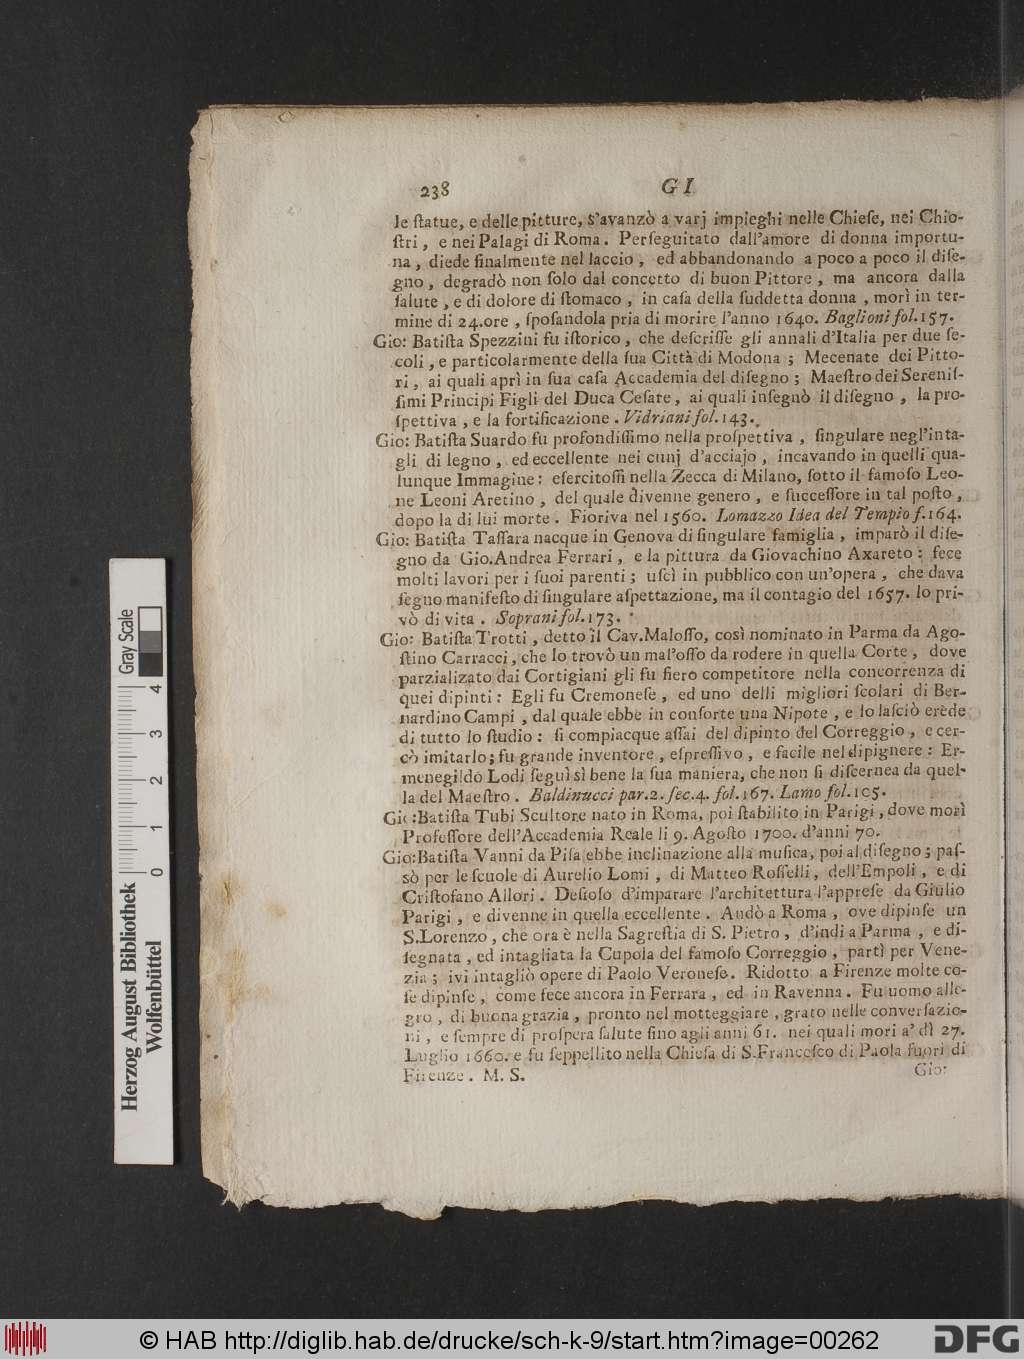 238 G I
le ſtatue, e delle pitture, s'avanzò a varj impieghi nelle Chieſe, nei Chio-
ſtri, e nei Palagi di Roma. Perſeguitato dall'amore di donna importu-
na, diede finalmente nel laccio, ed abbandonando a poco a poco il diſe-
gno, degradò non ſolo dal concetto di buon Pittore, ma ancora dalla
ſalute, e di dolore di ſtomaco, in caſa della ſuddetta donna, morì in ter-
mine di 24.ore, ſpoſandola pria di morire l'anno 1640. Baglioni fol.157.
Gio: Batiſta Spezzini fu iſtorico, che deſcriſſe gli annali d'Italia per due ſe-
coli, e particolarmente della ſua Città di Modona; Mecenate dei Pitto-
ri, ai quali aprì in ſua caſa Accademia del diſegno; Maeſtro dei Sereniſ-
ſimi Principi Figli del Duca Ceſare, ai quali inſegnò il diſegno, la pro-
ſpettiva, e la fortificazione. Vidriani fol.143.
Gio: Batiſta Suardo fu profondiſſimo nella proſpettiva, ſingulare negl'inta-
gli di legno, ed eccellente nei cunj d'acciajo, incavando in quelli qua-
lunque Immagine: eſercitoſſi nella Zecca di Milano, ſotto il famoſo Leo-
ne Leoni Aretino, del quale divenne genero, e ſucceſſore in tal poſto,
dopo la di lui morte. Fioriva nel 1560. Lomazzo Idea del Tempio f.164.
Gio: Batiſta Taſſara nacque in Genova di ſingulare famiglia, imparò il diſe-
gno da Gio.Andrea Ferrari, e la pittura da Giovachino Axareto: fece
molti lavori per i ſuoi parenti; uſcì in pubblico con un'opera, che dava
ſegno manifeſto di ſingulare aſpettazione, ma il contagio del 1657. lo pri-
vò di vita. Soprani fol.173.
Gio: Batiſta Trotti, detto il Cav.Maloſſo, così nominato in Parma da Ago-
ſtino Carracci, che lo trovò un mal'oſſo da rodere in quella Corte, dove
parzializato dai Cortigiani gli fu fiero competitore nella concorrenza di
quei dipinti: Egli fu Cremoneſe, ed uno delli migliori ſcolari di Ber-
nardino Campi, dal quale ebbe in conſorte una Nipote, e lo laſciò erede
di tutto lo ſtudio: ſi compiacque aſſai del dipinto del Correggio, e cer-
cò imitarlo; fu grande inventore, eſpreſſivo, e facile nel dipignere: Er-
menegildo Lodi ſeguì sì bene la ſua maniera, che non ſi diſcernea da quel-
la del Maeſtro. Baldinucci par.2. ſec.4. fol.167. Lamo fol.105.
Gio:Batiſta Tubi Scultore nato in Roma, poi ſtabilito in Parigi, dove morì
Profeſſore dell'Accademia Reale li 9. Agoſto 1700. d'anni 70.
Gio:Batiſta Vanni da Piſa ebbe inclinazione alla muſica, poi al diſegno; paſ-
sò per le ſcuole di Aurelio Lomi, di Matteo Roſſelli, dell'Empoli, e di
Criſtofano Allori. Deſioſo d'imparare l'architettura l'appreſe da Giulio
Parigi, e divenne in quella eccellente. Andò a Roma, ove dipinſe un
S.Lorenzo, che ora è nella Sagreſtia di S. Pietro, d'indi a Parma, e di-
ſegnata, ed intagliata la Cupola del famoſo Correggio, partì per Vene-
zia; ivi intagliò opere di Paolo Veroneſe. Ridotto a Firenze molte co-
ſe dipinſe, come fece ancora in Ferrara, ed in Ravenna. Fu uomo alle-
gro, di buona grazia, pronto nel motteggiare, grato nelle converſazio-
ni, e ſempre di proſpera ſalute fino agli anni 61. nei quali morì a' dì 27.
Luglio 1660. e fu ſeppellito nella Chieſa di S.Franceſco di Paola fuori di
Firenze. M. S.
Gio:
Gray Scale
0 1 2 3 4
Herzog August Bibliothek
Wolfenbüttel
© HAB http://diglib.hab.de/drucke/sch-k-9/start.htm?image=00262
DFG